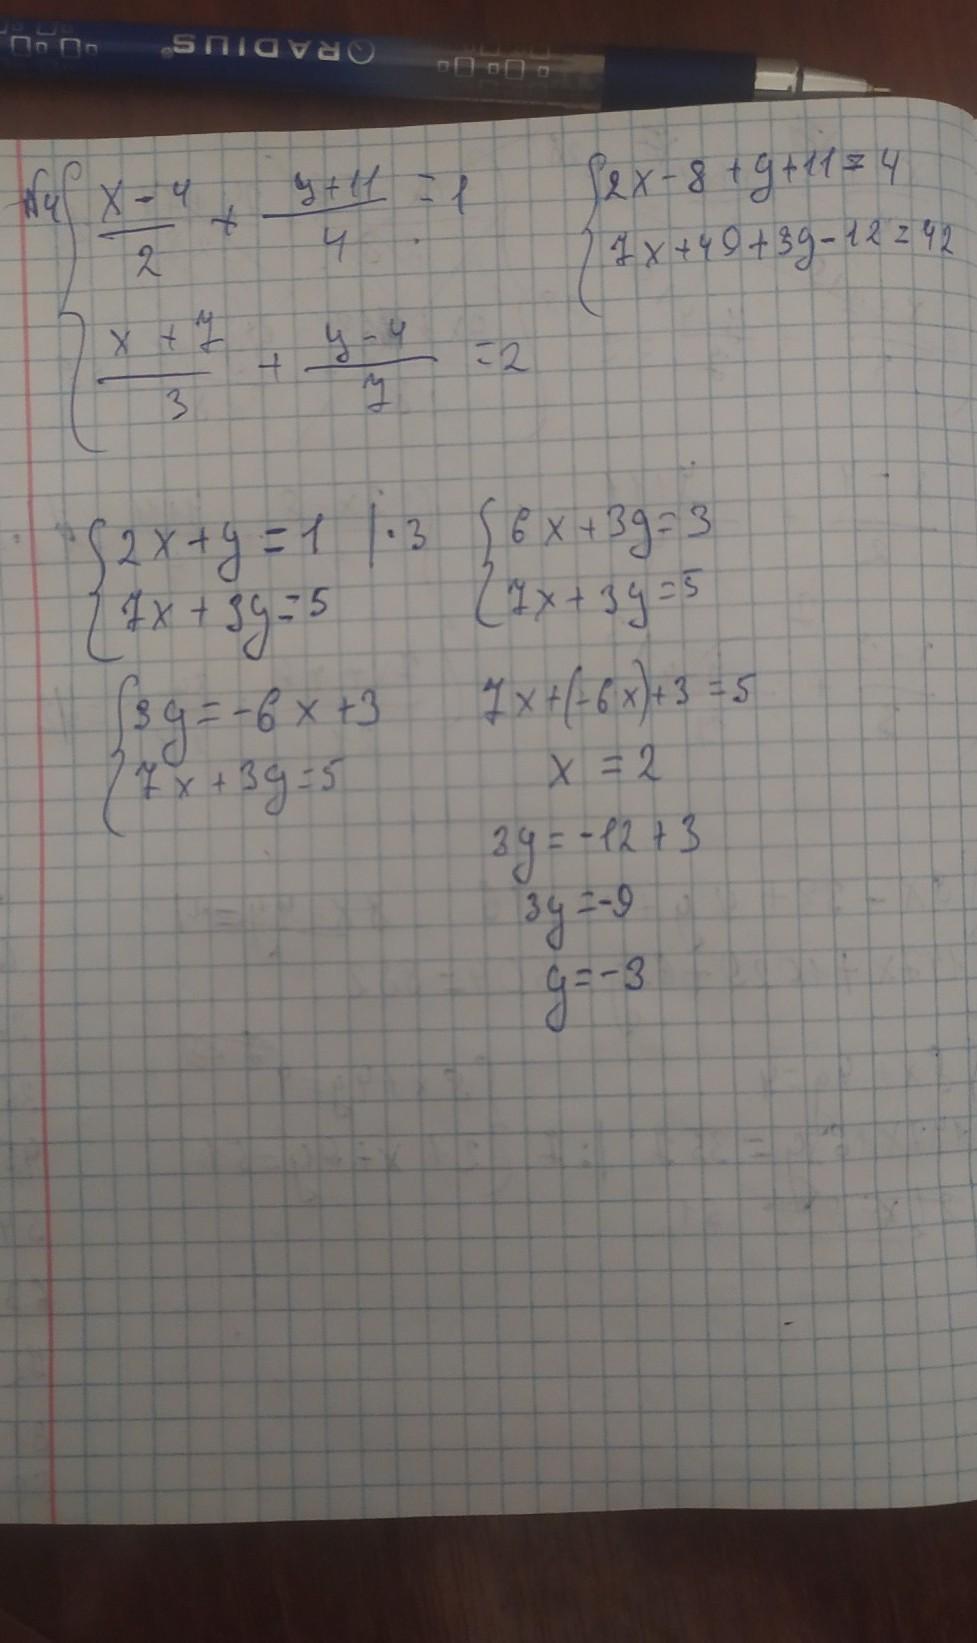 ORADIUS®
№4 { (x-4)/2 + (y+11)/4 = 1
{ (x+7)/3 + (y-4)/7 = 2
{ 2x-8+y+11=4
{ 7x+49+3y-12=42
{ 2x+y=1 |·3
{ 7x+3y=5
{ 6x+3y=3
{ 7x+3y=5
{ 3y=-6x+3
{ 7x+3y=5
7x+(-6x)+3=5
x=2
3y=-12+3
3y=-9
y=-3